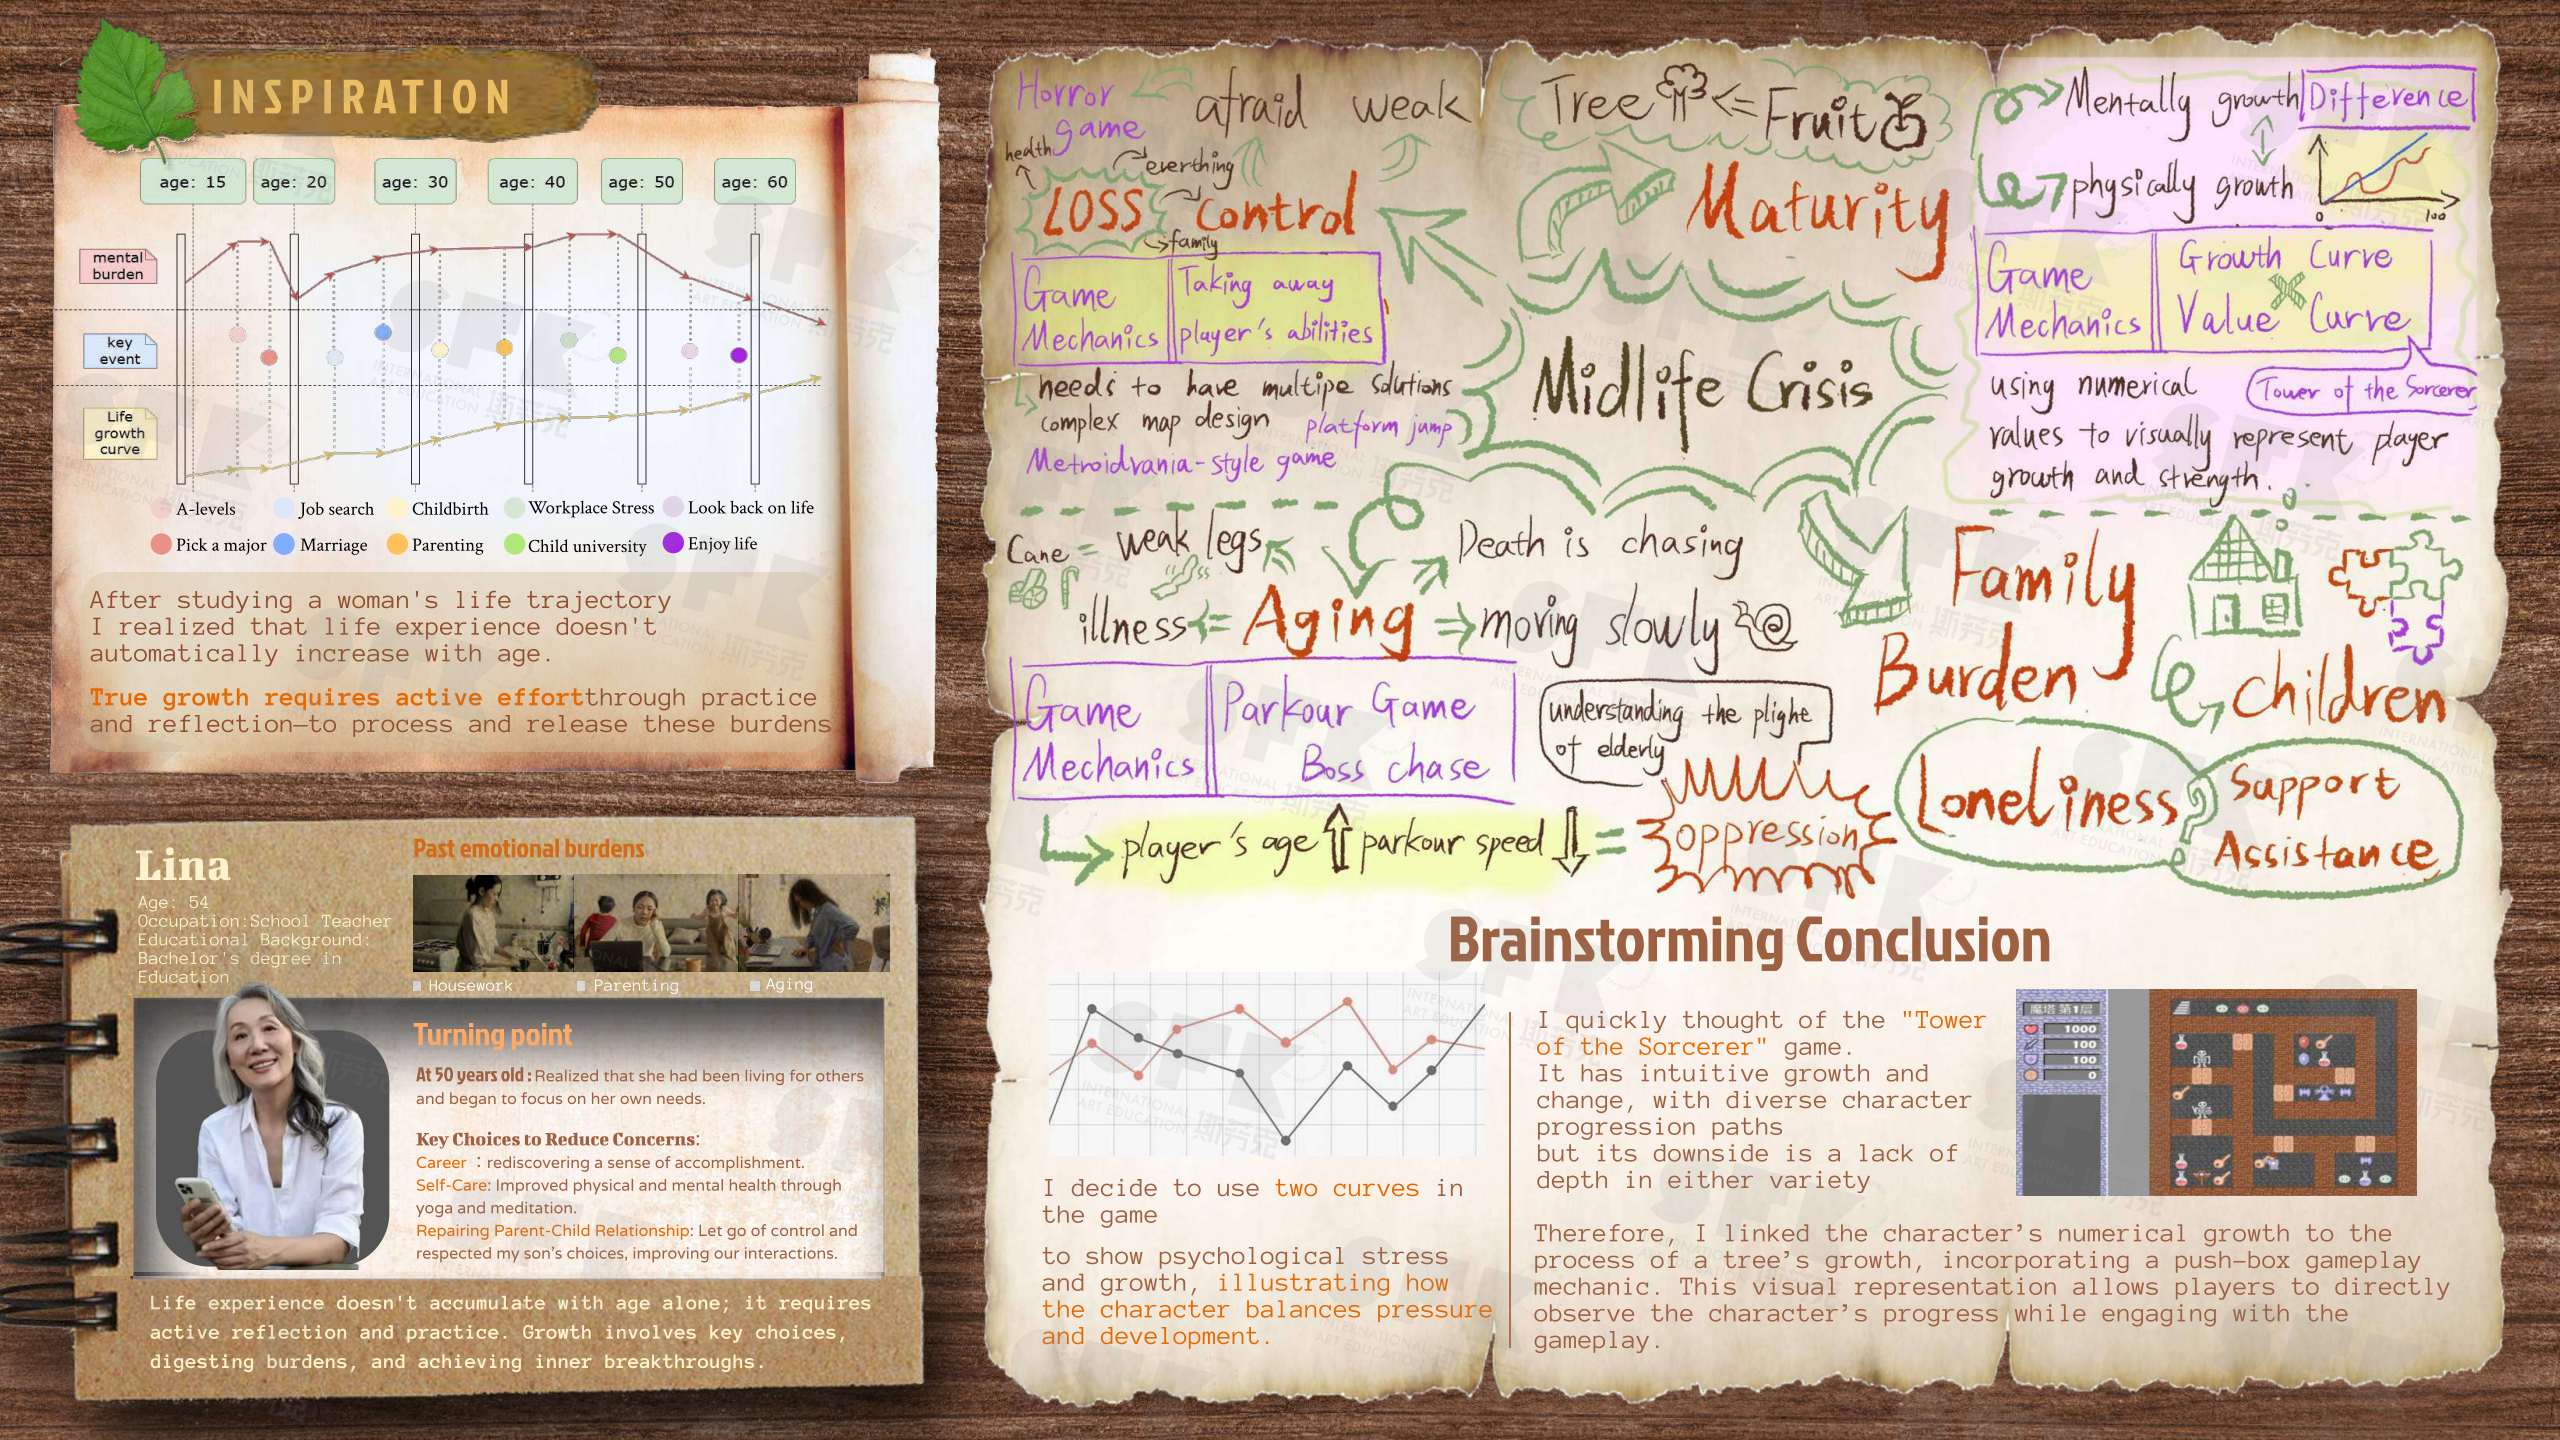 INSPIRATION
age: 15
age: 20
age: 30
age: 40
age: 50
age: 60
mental
burden
key
event
Life
growth
curve
A-levels
Job search
Childbirth
Workplace Stress
Look back on life
Pick a major
Marriage
Parenting
Child university
Enjoy life
After studying a woman's life trajectory
I realized that life experience doesn't
automatically increase with age.
True growth requires active effortthrough practice
and reflection—to process and release these burdens
Lina
Age: 54
Occupation:School Teacher
Educational Background:
Bachelor's degree in
Education
Past emotional burdens
Housework
Parenting
Aging
Turning point
At 50 years old : Realized that she had been living for others
and began to focus on her own needs.
Key Choices to Reduce Concerns:
Career ：rediscovering a sense of accomplishment.
Self-Care: Improved physical and mental health through
yoga and meditation.
Repairing Parent-Child Relationship: Let go of control and
respected my son's choices, improving our interactions.
Life experience doesn't accumulate with age alone; it requires
active reflection and practice. Growth involves key choices,
digesting burdens, and achieving inner breakthroughs.
Horror
game
afraid weak
health
everthing
LOSS control
family
Game
Mechanics
Taking away
player's abilities
needs to have multipe solutions
complex map design platform jump
Metroidvania-style game
Tree <= Fruit
Maturity
Midlife Crisis
Mentally growth
Difference
physically growth
0
100
Game
Mechanics
Growth Curve
Value Curve
using numerical
Tower of the Sorcerer
values to visually represent player
growth and strength.
Cane = weak legs
Death is chasing
illness Aging moving slowly
Game
Mechanics
Parkour Game
Boss chase
understanding the plighe
of elderly
player's age parkour speed =
oppression
Family
Burden
children
Loneliness
Support
Assistance
?
Brainstorming Conclusion
I decide to use two curves in
the game
to show psychological stress
and growth, illustrating how
the character balances pressure
and development.
I quickly thought of the "Tower
of the Sorcerer" game.
It has intuitive growth and
change, with diverse character
progression paths
but its downside is a lack of
depth in either variety
魔塔 第1层
1000
100
100
0
Therefore, I linked the character's numerical growth to the
process of a tree's growth, incorporating a push-box gameplay
mechanic. This visual representation allows players to directly
observe the character's progress while engaging with the
gameplay.
SFK
INTERNATIONAL
ART EDUCATION 斯芬克